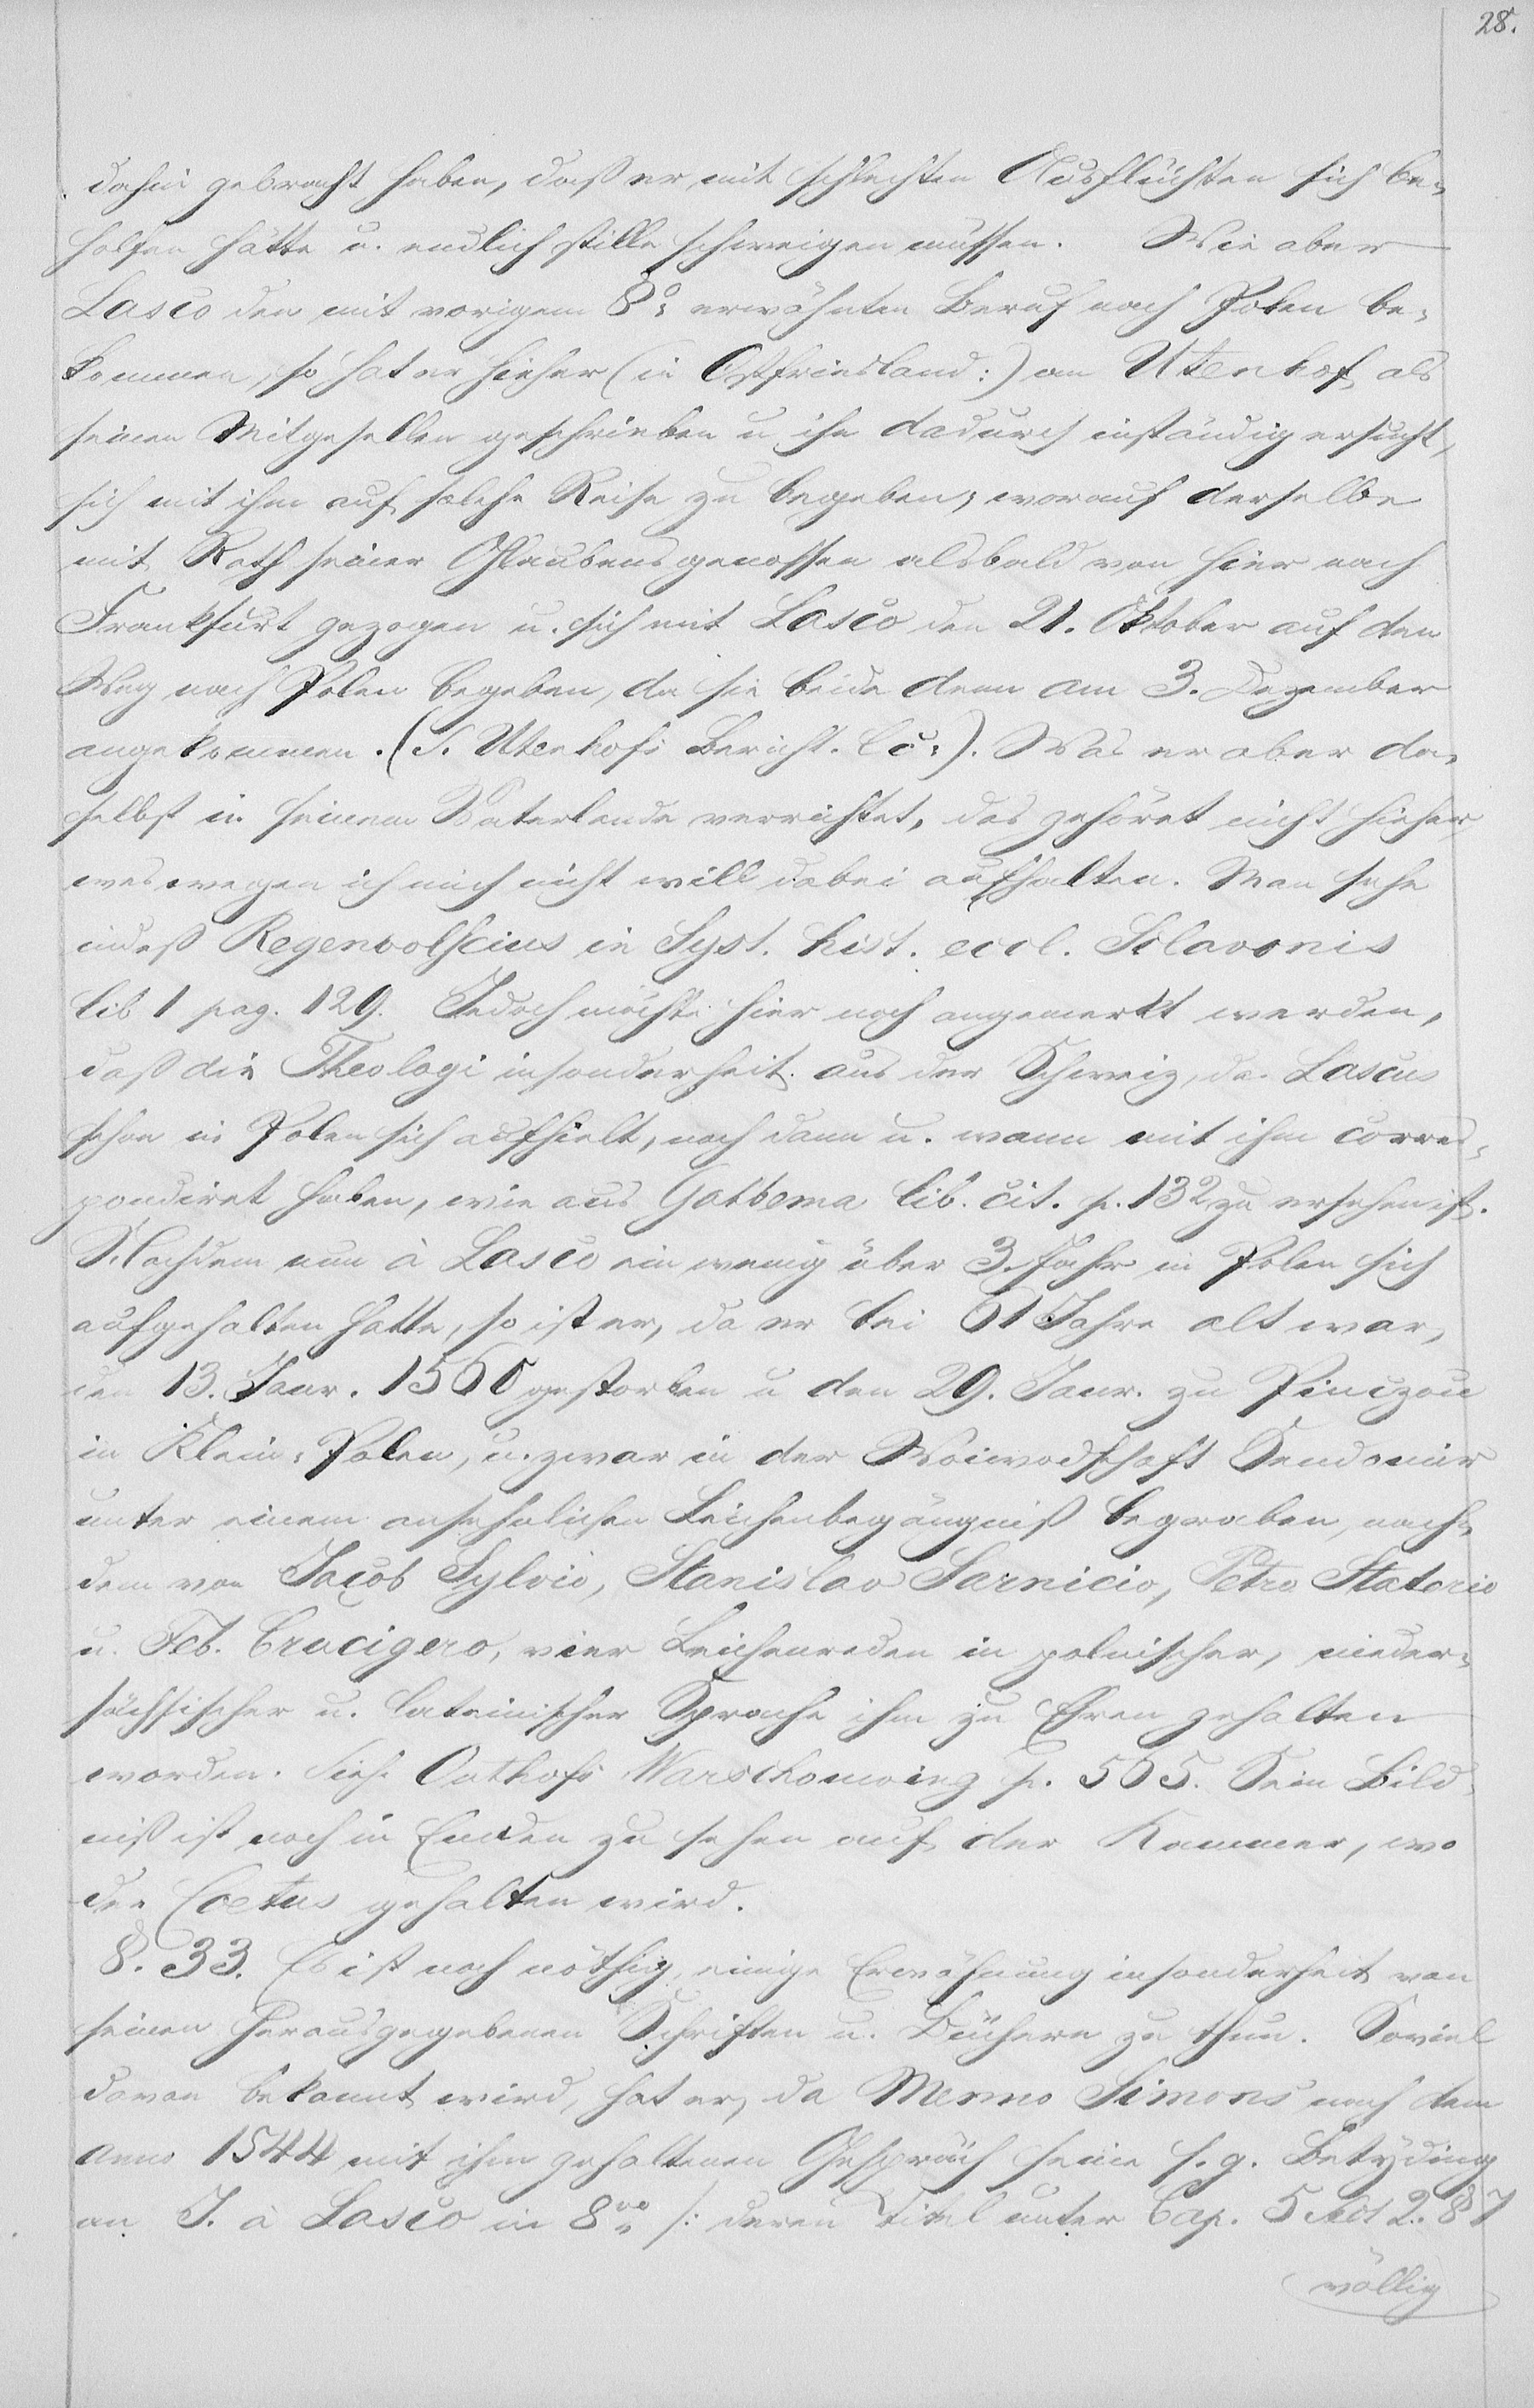 28.
dahin gebracht haben, daß er mit schlechten Ausflüchten sich be-
holfen hätte u. endlich stille schweigen müssen. Wie aber
Lasco den mit vorigem §° erwähnten Beruf nach Polen be-
kommen, so hat er hieher (in Ostfriesland:) an Utenhof als
seinen Mitgesellen geschrieben u ihn dadurch inständig ersucht,
sich mit ihm auf solche Reise zu begeben; worauf derselbe
mit Rath seiner Glaubensgenossen alsbald von hier nach
Frankfurt gezogen u. sich mit Lasco den 21. Oktober auf den
Weg nach Polen begeben, da sie beide denn am 3. Dezember
angekommen. (S. Utenhofs Bericht. l c:). Was er aber da-
selbst in seinem Vaterlande verrichtet, das gehöret nicht hieher,
weswegen ich mich nicht will dabei aufhalten. Man sehe
indeß Regenvolscius in Syst. hist. eccl. Sclavonis
lib 1 pag. 129. Jedoch möchte hier noch angemerkt werden,
daß die Theologi insonderheit aus der Schweiz, da Lascus
schon in Polen sich aufhielt, noch dann u. wann mit ihm corres-
pondiret haben, wie aus Gabbema lib. cit. p. 132 zu ersehen ist.
Nachdem nun à Lasco ein wenig über 3 Jahr in Polen sich
aufgehalten hatte, so ist er, da er bei 61 Jahre alt war,
den 13. Janr. 1560 gestorben u den 29. Janr. zu Pinczou
in Klein-Polen, u. zwar in der Woiwodschaft Sendomir
unter einem ansehnlichen Leichenbegängniß begraben, nach-
dem von Jacob Sylvio, Stanislao Sarnicio, Petro Statorio
u. Feb. Crucigero, vier Leichenreden in polnischer, nieder-
sächsischer u. lateinischer Sprache ihm zu Ehren gehalten
worden. Siehe Outhofs Warschouwing p. 565. Sein Bild-
niß ist noch in Emden zu sehen auf der Kammer, wo
der Coetus gehalten wird.
§. 33. Es ist noch nöthig, einige Erwähnung insonderheit von
seinen herausgegebenen Schriften u. Büchern zu thun. Soviel
davon bekannt wird, hat er, da Menno Simons nach dem
Anno 1544 mit ihm gehaltenen Gespräch seine s. g. Betyding
an J. à Lasco in 8vo /: deren Titel unter Cap. 5 Sect 2. § 7
völlig